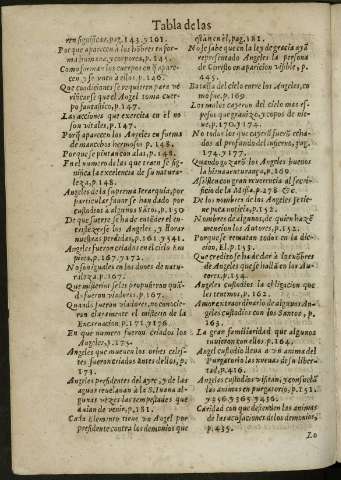 Tabla de las
ren significar, pag. 143. y 101.
Porque aparecen a los hõbres en for-
ma humana, y corporea, p. 145.
Como forman los cuerpos en q̃ apare-
cen, y se vnen a ellos, p. 146.
Que condiciones se requieren para ve
rificarse que el Angel toma cuer-
po fantastico, p. 147.
Las acciones que exercita en el no
son vitales, p. 147.
Porq̃ aparecen los Angeles en forma
de mancebos hermosos p. 148.
Porque se pintan con alas, p. 148.
En el numero de las que traen se sig-
nifica la excelencia de su natura-
leza, p. 148.
Angeles de la suprema Ierarquia, por
particular fauor se han dado por
custodios a algunos Sãtos, p. 150
De que suerte se ha de entēder el en-
tristezerse los Angeles, y llorar
nuestras perdidas, p. 161. y 341.
Angeles fueron criados en el cielo Em
pireo, p. 167. y 172.
No son iguales en los dones de natu-
raleza. p. 167.
Que misterios se les propusieron quã-
do fueron viadores. p. 167.
Quando fueron viadores, no conocie-
ron claramente el misterio de la
Encarnacion, p. 171. y 176.
En que numero fueron criados los
Angeles, p. 175.
Angeles que mueuen los orbes celes-
tes fueron criados antes dellos, p.
173.
Angeles presidentes del ayre, y de las
aguas reuelauan a la S. Iuana al-
gunas vezes las tempestades que
auian de venir, p. 181.
Cada Elemento tiene vn Angel por
presidente contra los demonios que
estan en el, pag. 181.
No se sabe que en la ley de gracia aya
representado Angeles la persona
de Christo en aparicion visible, p.
445.
Batalla del cielo entre los Angeles, co
mo fue, p. 169.
Los malos cayeron del cielo mas es-
pesos que granizo, y copos de nie-
ue, p. 170. y 174.
No todos los que cayerõ fuerõ echa-
dos al profundo del infierno, pag.
174. y 177.
Quando gozarõ los Angeles buenos
la bienauenturança, p. 169
Assisten con gran reuerencia al sacri-
ficio de la Missa, p. 278 &c.
De los nombres de los Angeles se tie-
ne poca noticia, p. 152.
Nombres de algunos, de quien hazē
mencion los Autores, p. 152.
Porque se rematen todos en la dic-
cion, El. p. 153.
Que credito se ha de dar à los nõbres
de Angeles que se hallã en los Au-
tores, p. 154.
Angeles custodios la obligacion que
les tenemos, p. 162.
Amor extraordinario de algunos An-
geles custodios con los Santos, p.
163.
La gran familiaridad que algunos
tuuieron con ellos, p. 164.
Angel custodio lleua a vn anima del
Purgatorio las nueuas de su liber-
tad, p. 416.
Angeles custodios visitan, y consuelã
las animas en purgatorio, p. 151.
y 356. y 365. y 436.
Caridad con que defienden las animas
de las acusaciones de los demonios,
p. 435.
Lo